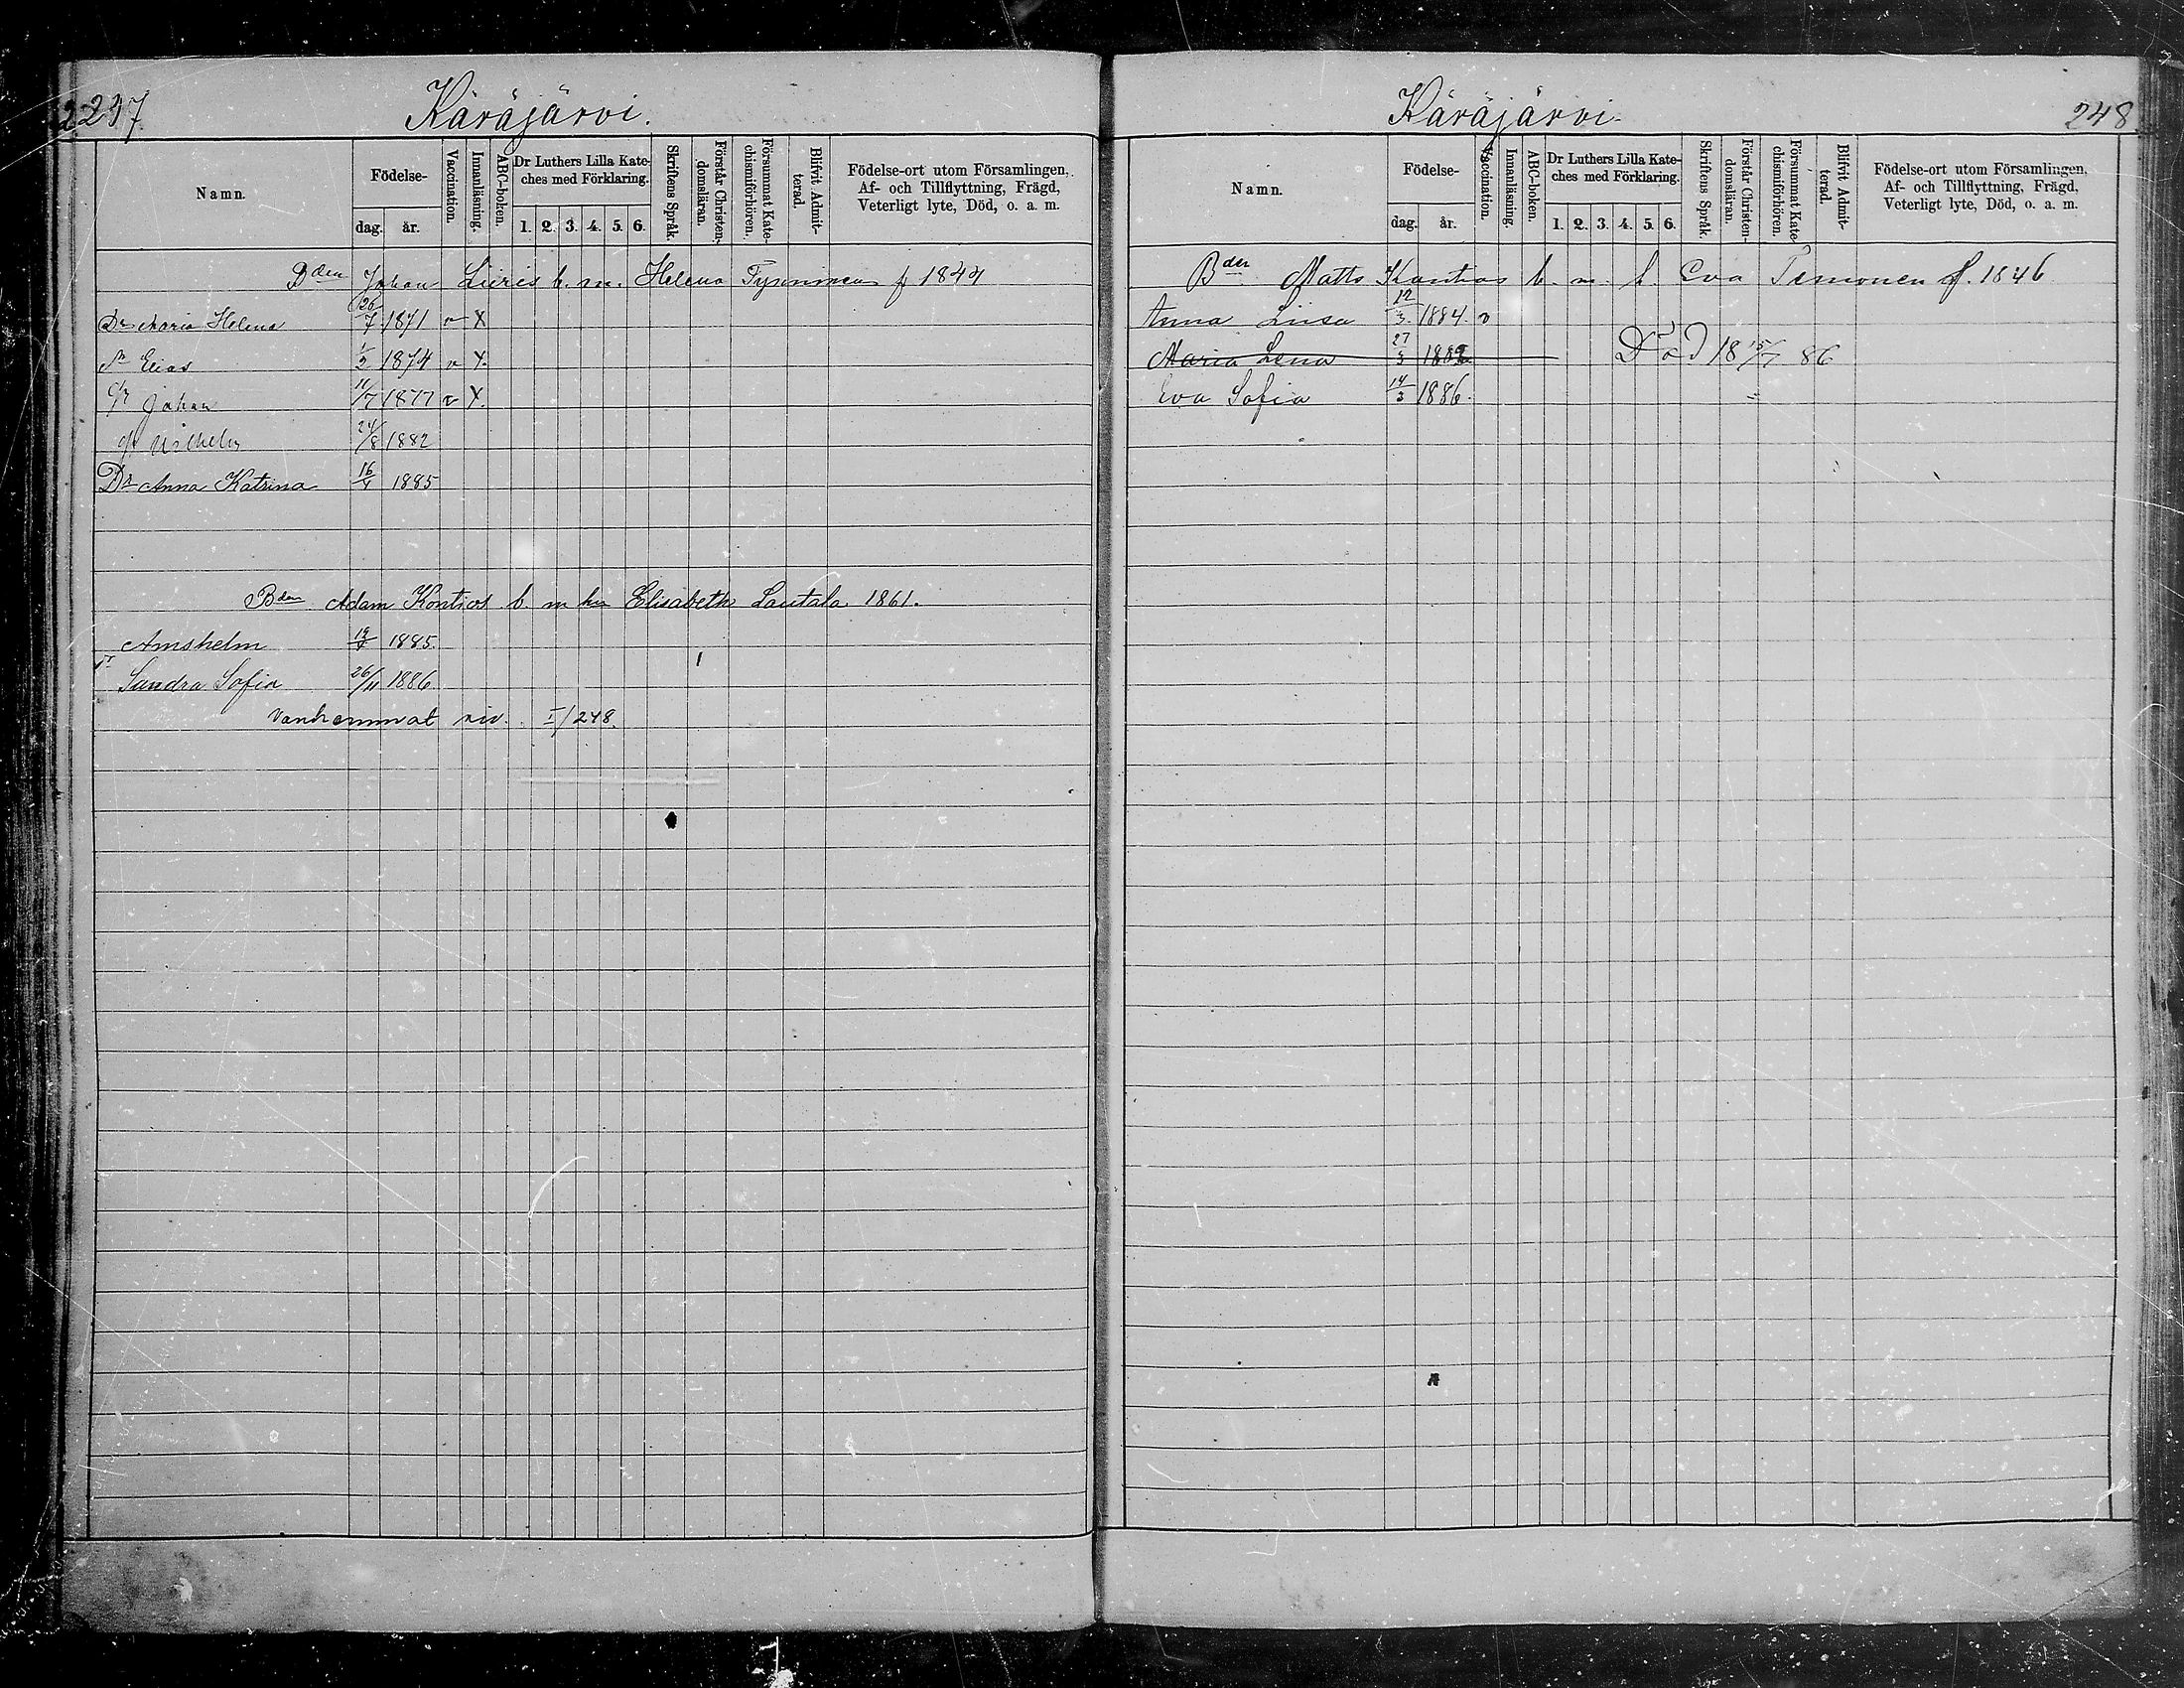 2237
Käräjärvi.
Namn.
Födelse-
dag.
år.
Vaccination.
Innanläsning.
ABC-boken.
Dr Luthers Lilla Kate-
ches med Förklaring.
1. 2. 3. 4. 5. 6.
Skriftens Språk.
Förstår Christen-
domsläran.
Försummat Kate-
chismiförhören.
Blifvit Admit-
terad
Födelse-ort utom Församlingen,
Af- och Tillflyttning, Frägd,
Veterligt lyte, Död, o. a. m.
Bden Johan b. m. Helena f 1844
Dr Maria Helena 26/7 1871 v X
Elias 1/2 1874 v X.
Johan 11/7 1877 v X.
Vilhelm 24/8 1882
Dr Anna Katrina 16/4 1885
Bden Adam Kontios b. m. hu Elisabeth Lautala 1861.
Amshelm 1885.
Sandra Sofia 26/11 1886
Vanhemmat siv. I/248.
Käräjärvi.
248
Namn.
Födelse-
dag.
år.
Vaccination.
Innanläsning.
ABC-boken.
Dr Luthers Lilla Kate-
ches med Förklaring.
1. 2. 3. 4. 5. 6.
Skriftens Språk.
Förstår Christen-
domsläran.
Försummat Kate-
chismiförhören.
Blifvit Admit-
terad.
Födelse-ort utom Församlingen,
Af- och Tillflyttning, Frägd,
Veterligt lyte, Död, o. a. m.
Bden Matts Kontios b. m. h. Eva Timonen f. 1846
Anna Liisa 12/3 1884. v
Maria Lena 27/3 1882 Död 18 15/7 86
Eva Sofia 14/3 1886.